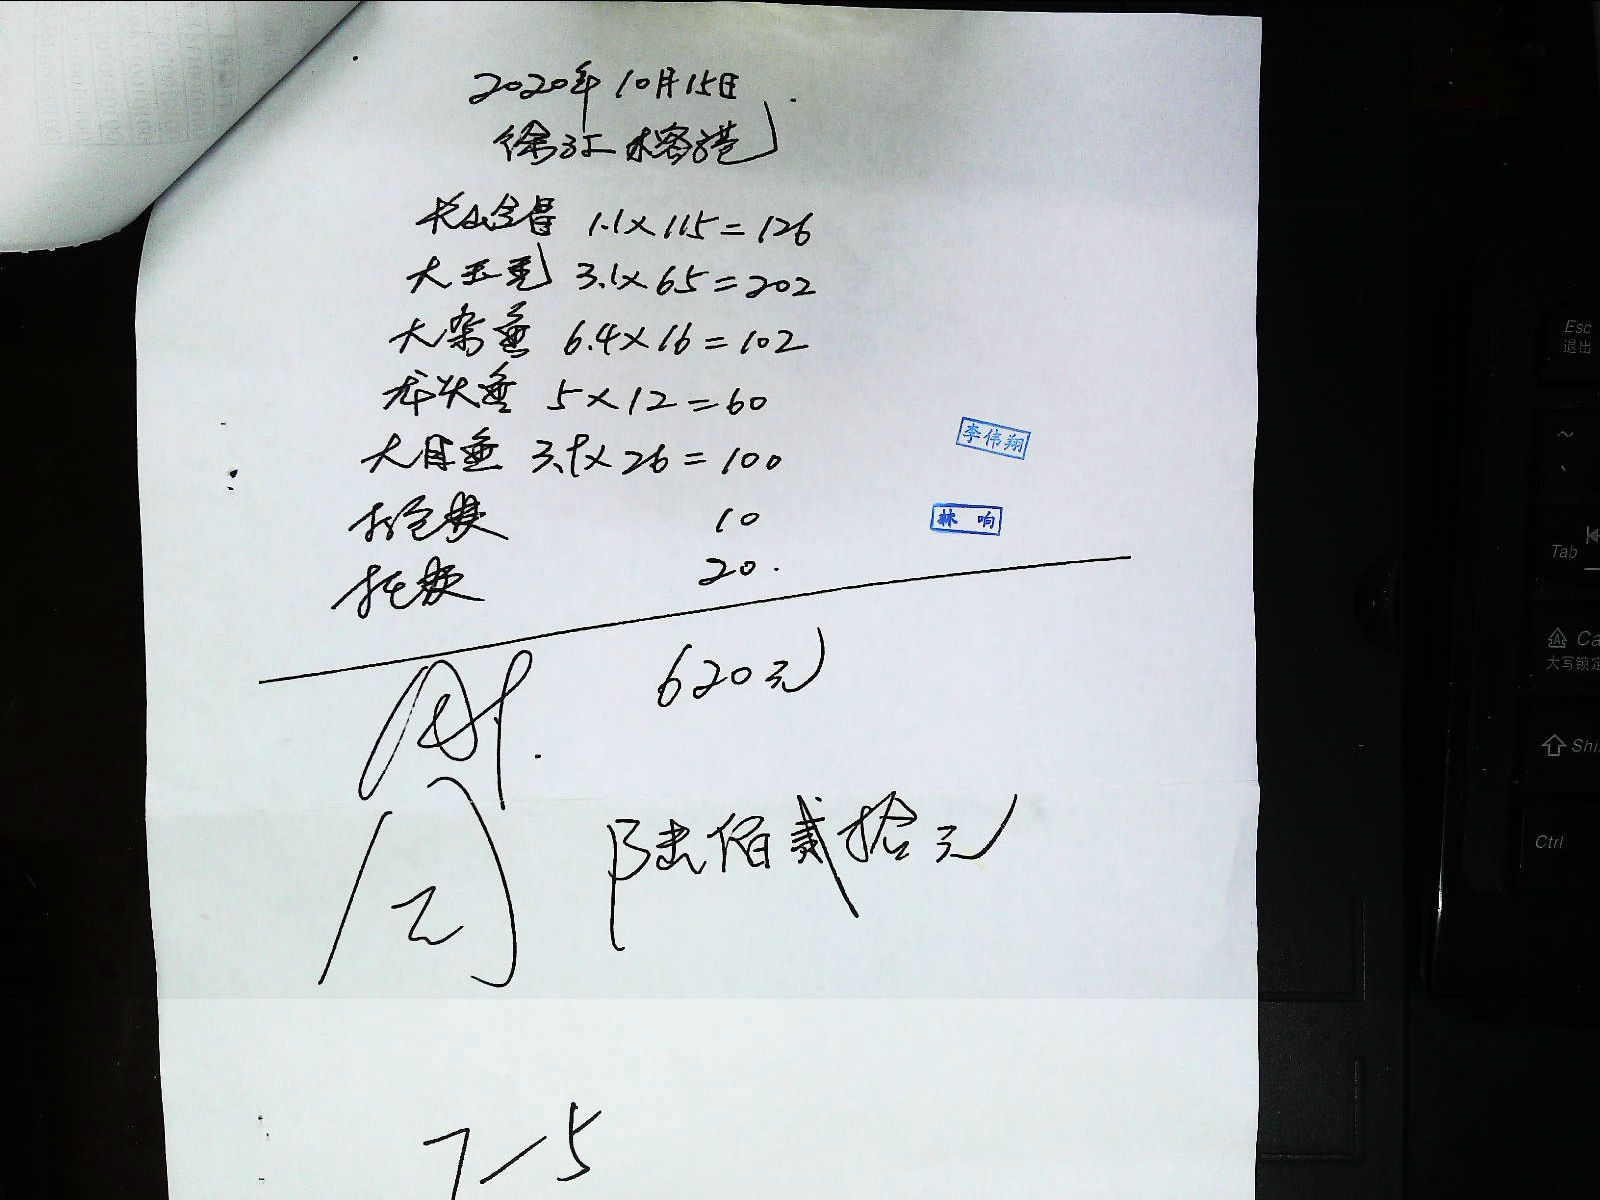 2020年10月15日
徐汇木客港
1.1×115=126
大玉毛 3.1×65=202
大杂鱼 6.4×16=102
龙头鱼 5×12=60
大目鱼 3.9×26=100
打包费 10
托费 20.
620元
陆佰贰拾元
李伟翔
林响
7-5
Esc
退出
~
Tab
Ca
大写锁定
Shi
Ctrl